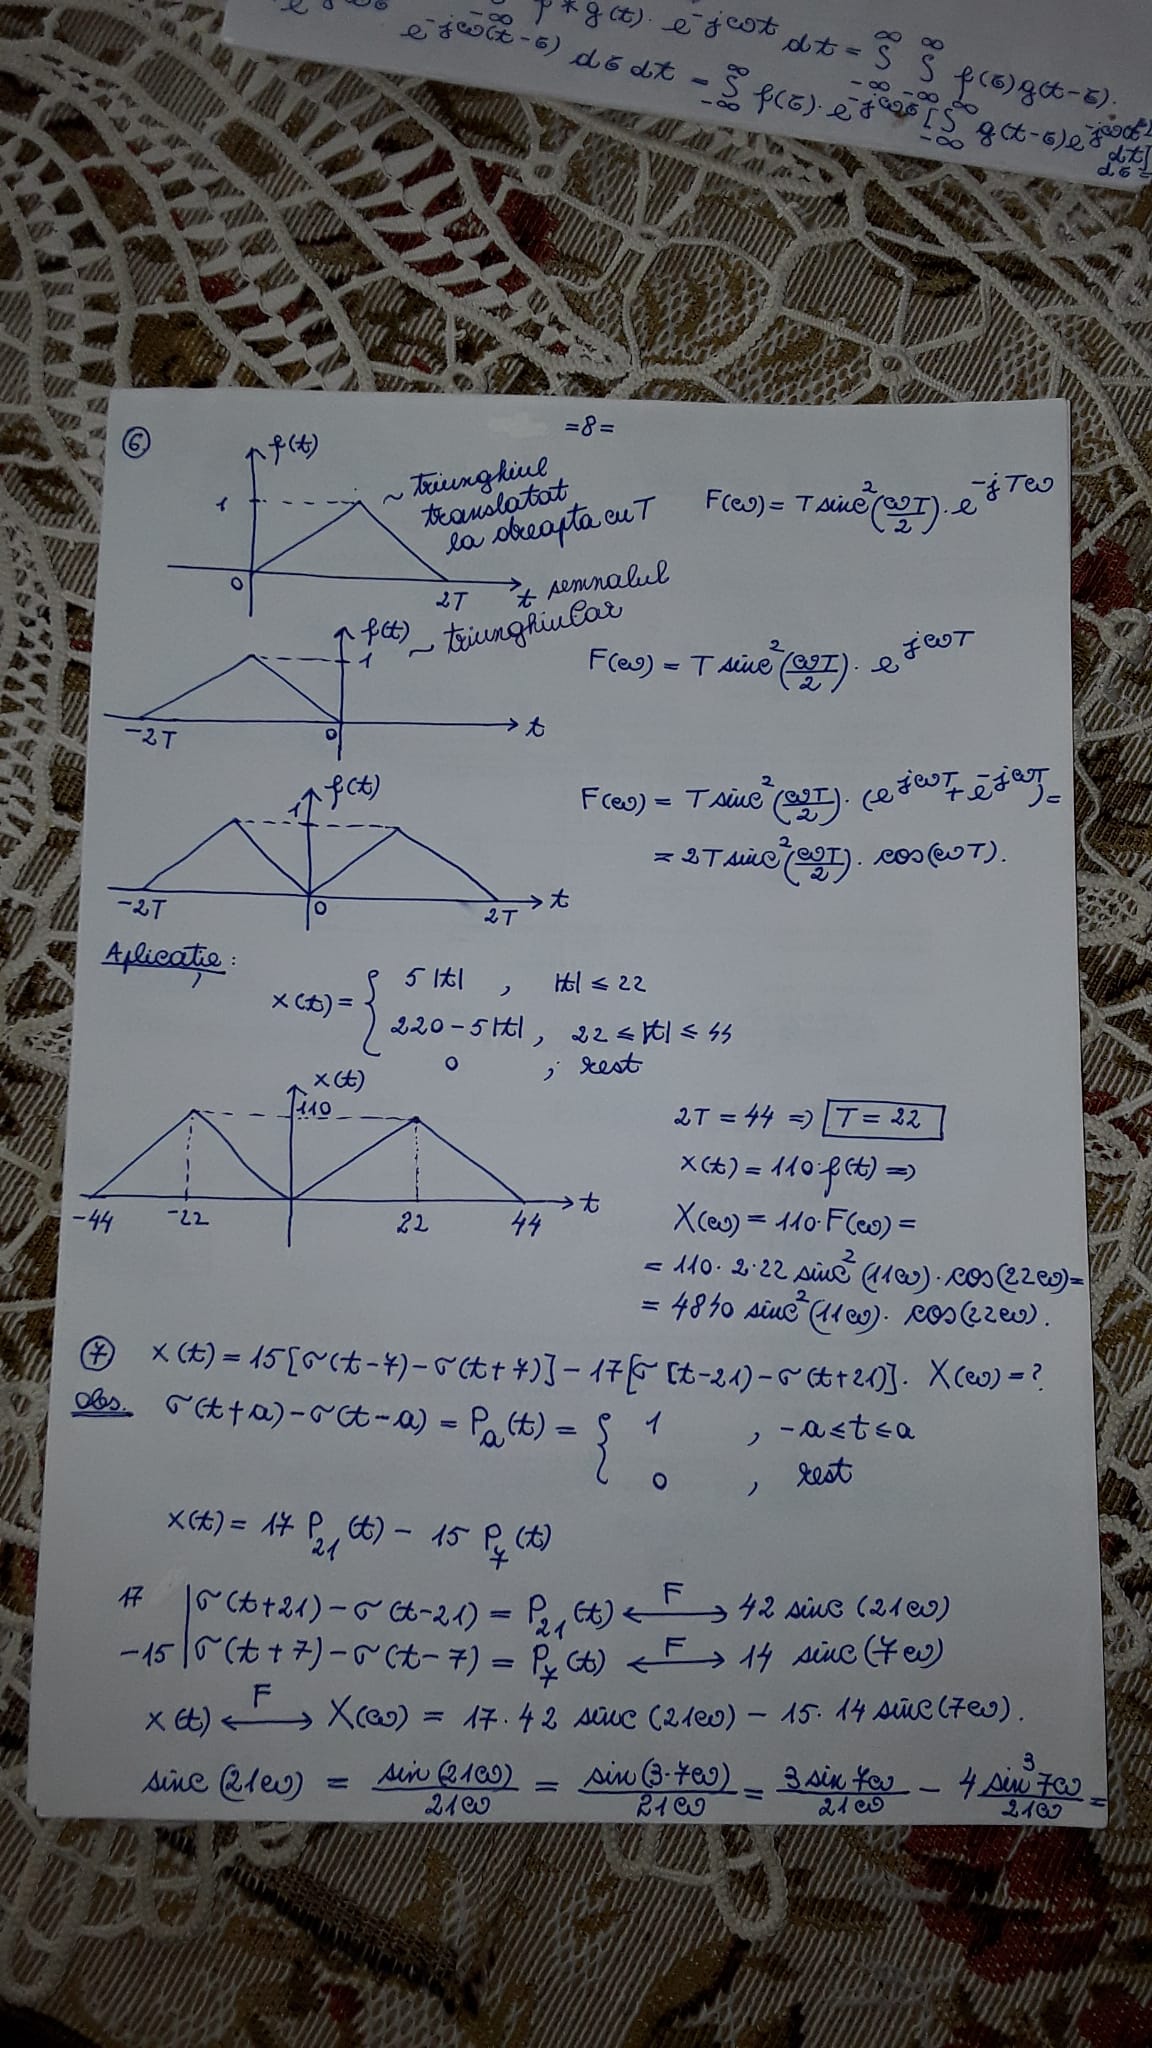 p * g(t) · e^-jωt dt = ∫_-∞^∞ ∫_-∞^∞ f(σ)g(t-σ).
e^-jω(t-σ) dσ dt = ∫_-∞^∞ f(σ) · e^-jωσ [∫_-∞^∞ g(t-σ) e^-jω
dt]
dσ =
=8=
⑥ f(t)
1
~ triunghiul
translatat
la dreapta cu T
F(ω) = T sinc²(ωT/2) · e^-jTω
0 2T t
f(t) ~ semnalul
triunghiular
1
F(ω) = T sinc²(ωT/2) · e^jωT
-2T 0 t
f(t)
1
F(ω) = T sinc²(ωT/2) · (e^jωT + e^-jωT) =
= 2T sinc²(ωT/2) · cos(ωT).
-2T 0 2T t
Aplicație:
x(t) = { 5|t| , |t| ≤ 22
220 - 5|t| , 22 ≤ |t| ≤ 44
0 ; rest
x(t)
110
-44 -22 22 44 t
2T = 44 => T = 22
x(t) = 110·f(t) =>
X(ω) = 110·F(ω) =
= 110· 2·22 sinc²(11ω) · cos(22ω) =
= 4840 sinc²(11ω) · cos(22ω).
⑦ x(t) = 15[σ(t-7) - σ(t+7)] - 17[σ(t-21) - σ(t+21)]. X(ω) = ?
Obs. σ(t+a) - σ(t-a) = P_a(t) = { 1 , -a ≤ t ≤ a
0 , rest
x(t) = 17 P_21(t) - 15 P_7(t)
17 | σ(t+21) - σ(t-21) = P_21(t) ⟷^F 42 sinc(21ω)
-15 | σ(t+7) - σ(t-7) = P_7(t) ⟷^F 14 sinc(7ω)
x(t) ⟷^F X(ω) = 17·42 sinc(21ω) - 15·14 sinc(7ω).
sinc(21ω) = sin(21ω)/21ω = sin(3·7ω)/21ω = 3 sin 7ω/21ω - 4 sin³7ω/21ω =